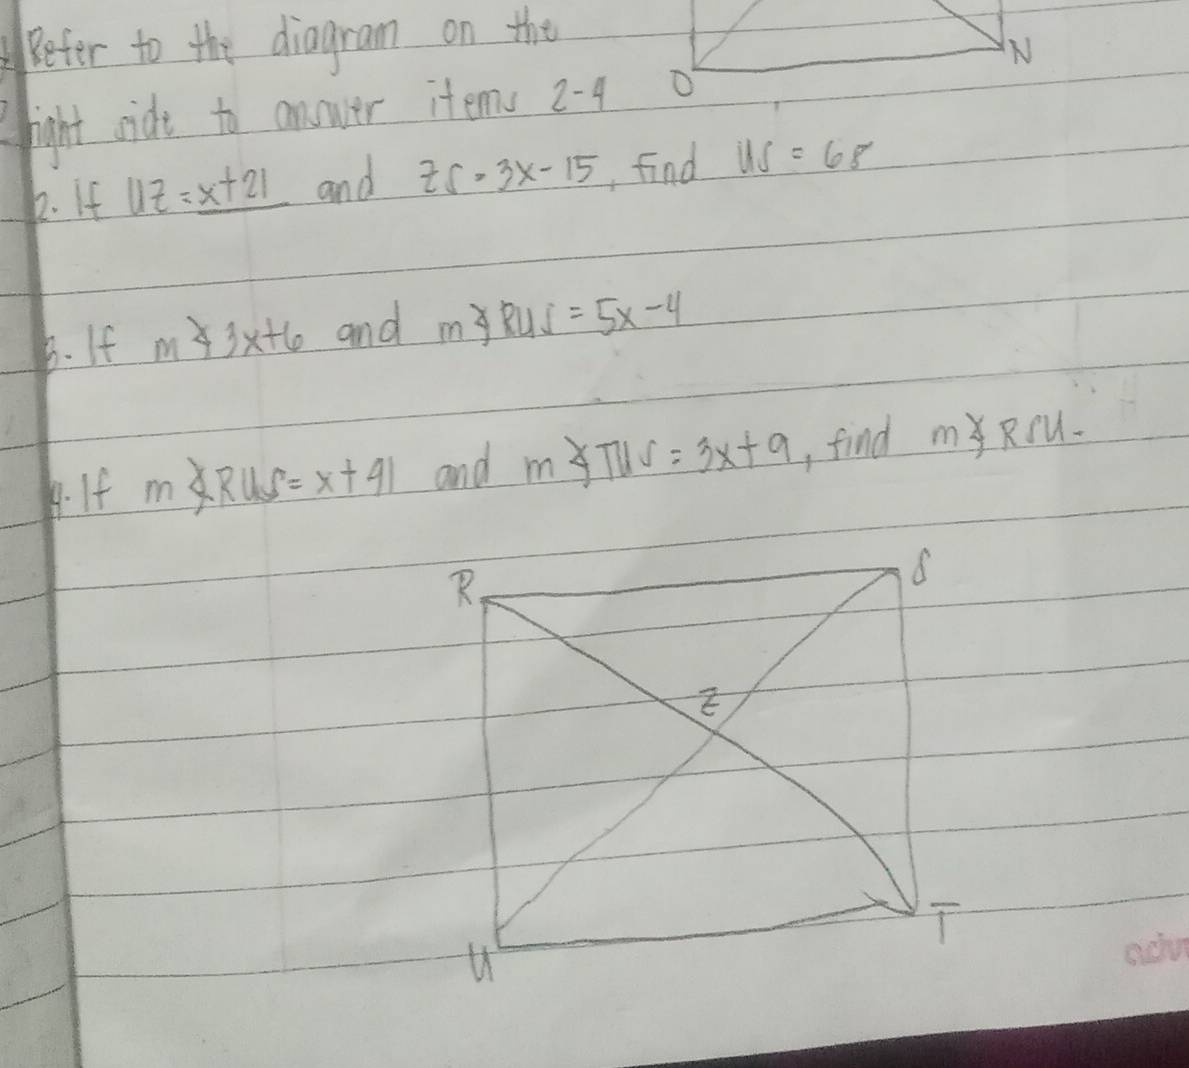 Refer to the diagram on the
right side to answer items 2-4
O
N
2. If UZ = x+21 and ZS = 3x-15, find US = 68
3. If m∡3x+6 and m∡RUS = 5x-4
4. If m∡RUS = x+41 and m∡TUS = 3x+9, find m∡RSU.
R
S
Z
U
T